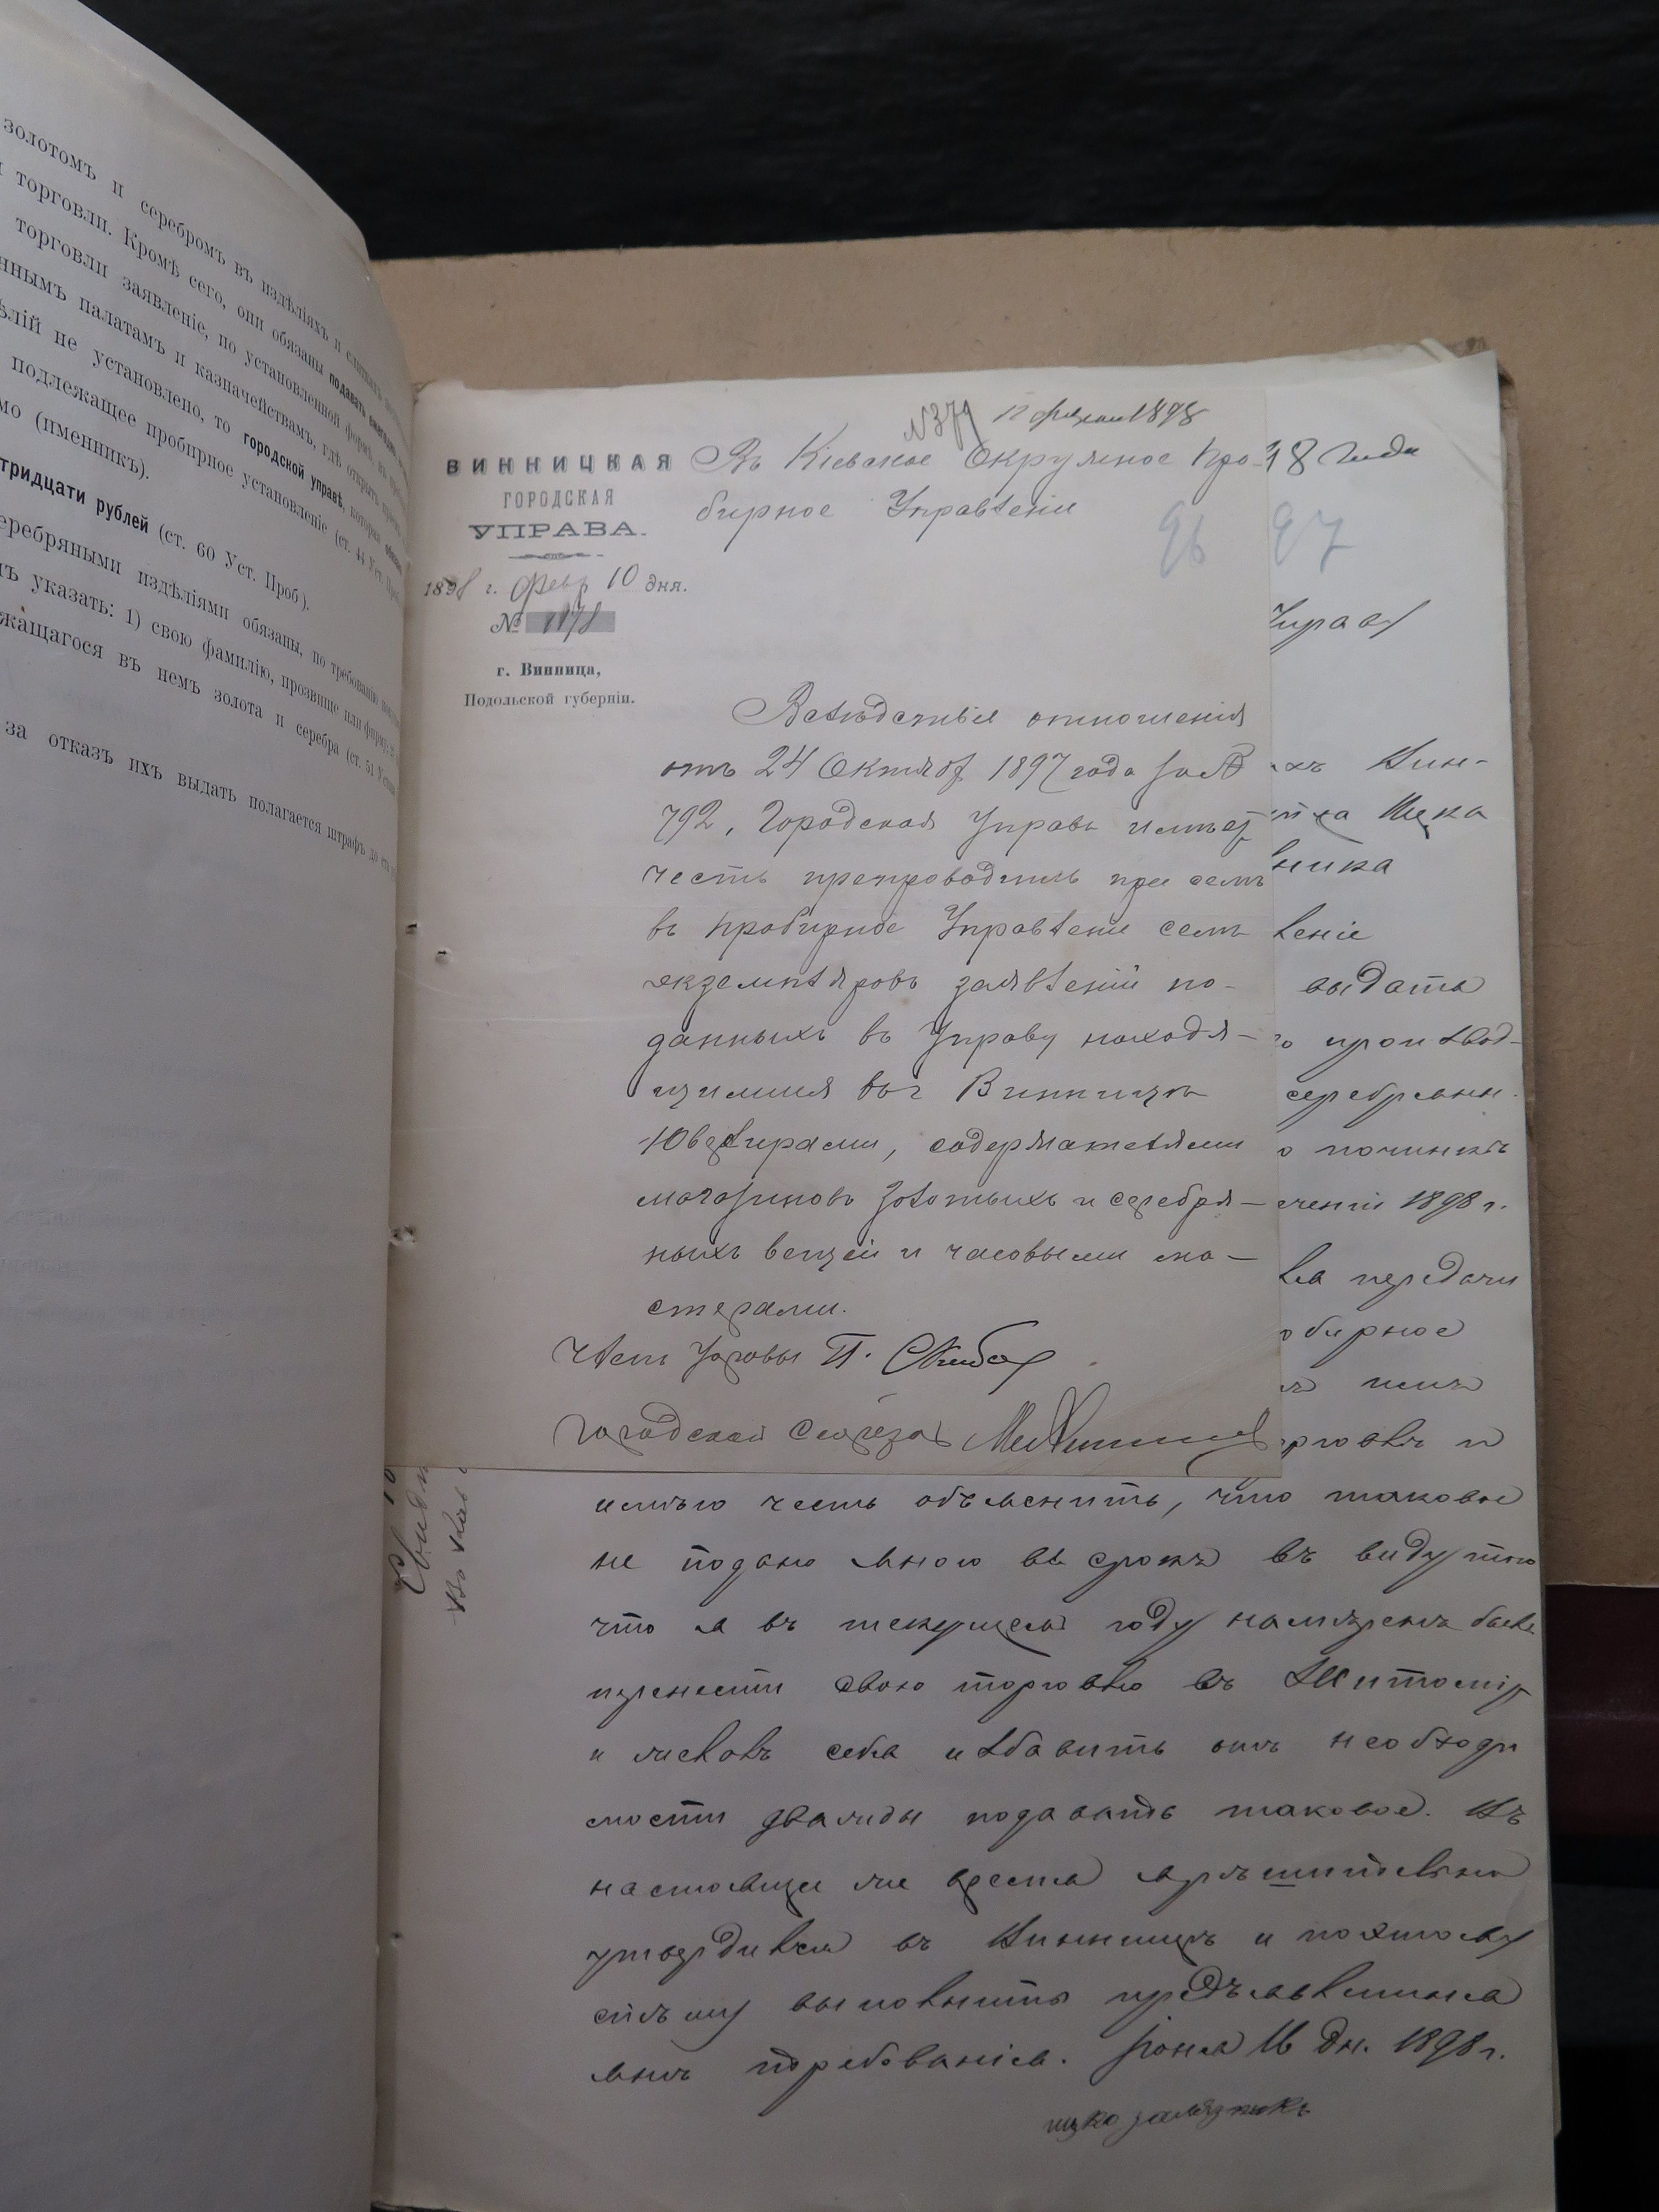 золотомъ и серебромъ въ издѣліяхъ и слиткахъ
торговли. Кромѣ сего, они обязаны подавать ежегодно
торговли заявленіе, по установленной формѣ, въ
палатамъ и казначействамъ, гдѣ
не установлено, то городской управѣ, которая
подлежащее пробирное установленіе (ст. 44 Уст. Проб.
(именникъ).
тридцати рублей (ст. 60 Уст. Проб).
серебряными издѣліями обязаны, по требованію
указать: 1) свою фамилію, прозвище или фирму; 2)
въ немъ золота и серебра (ст. 51 Устава
за отказъ ихъ выдать полагается штрафъ до ста
№379 12 1898
ВИННИЦКАЯ
ГОРОДСКАЯ
УПРАВА.
1898 г. Февр 10 дня.
№ 1878
г. Винница,
Подольской губерніи.
Въ Кіевское Окружное Про-
бирное Управленіе
96
Вслѣдствіе отношенія
отъ 24 Октяб. 1897 года за №
792, Городская Управа имѣет
честь препроводить при семъ
въ Пробирное Управленіе семь
экземпляровъ заявленій по-
данныхъ въ Управу находя-
щимися въ г Винницѣ
Ювелирами, содержателями
магазиновъ золотыхъ и серебря-
ныхъ вещей и часовыми ма-
стерами.
Член Управы П.
Городской Секретар
98 года
97
Управу
Вин-
Ицка
ника
леніе
выдать
производ-
серебрянн.
о починкѣ
еченіи 1898 г.
для передачи
обирное
рговлѣ и
имѣю честь объяснить, что таковое
не подано мною въ срокъ въ виду того
что я въ текущемъ году намѣренъ былъ
перенести свою торговлю въ Житомір
и желалъ себя избавить отъ необходи
мости дважды подавать таковое. Въ
настоящее же время я рѣшительно
утвердился въ Винницѣ и поэтому
спѣшу выполнить предъявленныя
мнѣ требованія. Іюня 16 дн. 1898 г.
ицко